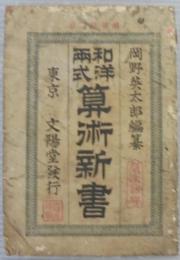 岡野英太郎編纂
和洋
両式
算術新書
東京 文陽堂發行